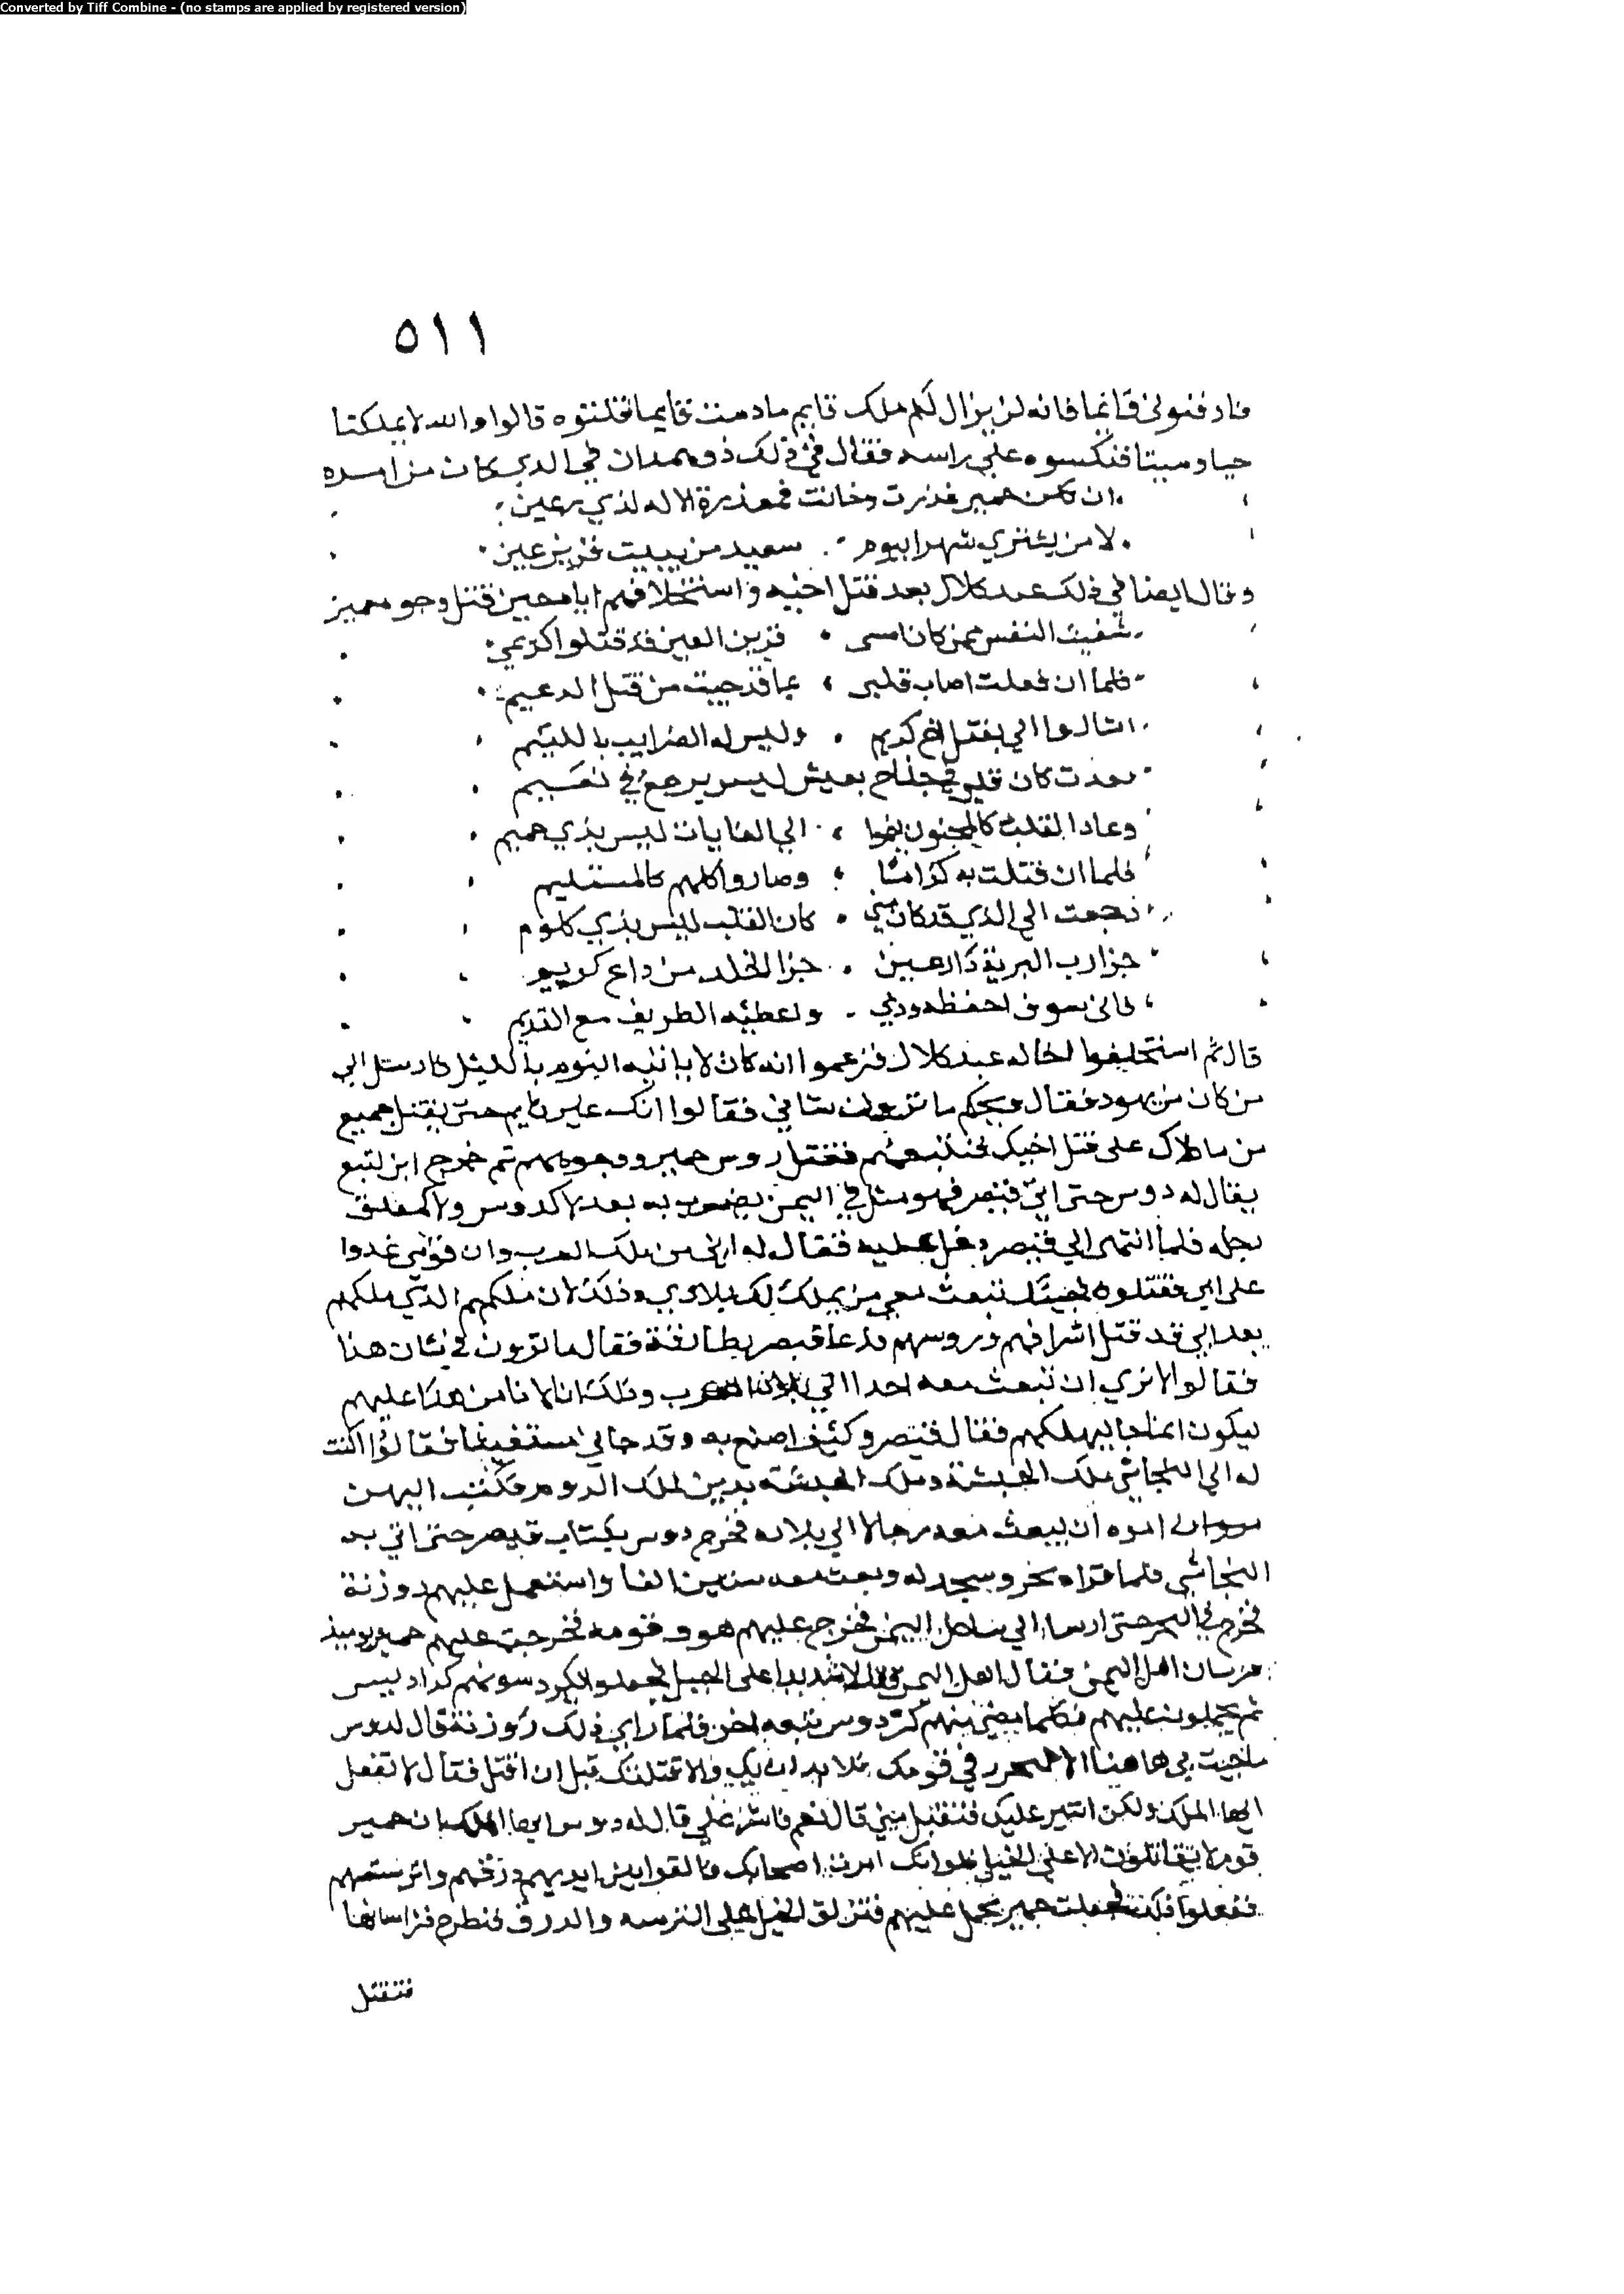 Converted by Tiff Combine - (no stamps are applied by registered version)
٥١١
فادفنوني قايما فانه لن يزال لكم ملك قايم مادمت قايما فقلنتوه قالوا والله لا يملكنا
حيا وميتا فنكسوه على راسه فقال في ذلك ذو همدان في الذي كان من امره
ان تكن حمير غدرت وخانت فمعذرة الاله لذي رعين
الا من يشتري شهرا بيوم سعيد من يبيت قرير عين
وقال ايضا في ذلك عبد كلال بعد قتل اخيه واستخلافهم اياه حين قتل وجوه حمير
شفيت النفس ممن كان امسى قرير العين قد قتلوا كريمي
فلما ان فعلت اصاب قلبي بما قد جيت من قتل الدعيم
اشاروا الي بقتل اخ كريم وليس له الضرايب باللييم
فعدت كان قلبي في جناح بعيش ليس يرجع في نعيم
وعاد القلب كالمجنون الى الغايات ليس بذي حميم
فلما ان قتلت به كراما وصاروا كلهم كالمستليم
رجعت الى الذي قد كان مني كان القلب ليس بذي كلوم
جزا رب البرية ذا رعين جزا الخلد من داع كريم
فاني سوف احفظه وربي واعطيه الطريف مع القديم
قال ثم استخلفوا اخاه عبد كلال فزعموا انه كان لا ياتيه النوم بالليل فارسل الى
من كان من يهود فقال ويحكم ما ترون شاني فقالوا انك غير نايم حتى يقتل جميع
من مالاك على قتل اخيك فتتبعهم فقتل روس حمير ووجوههم ثم خرج ابن لتبع
يقال له دوس حتى اتى قيصر فهو مثل في اليمن يضرب به بعد لا كدوس ولا كمعلق
رحله فلما انتهى الى قيصر دخل عليه فقال له اني من ملك العرب وان قومي غدوا
على ابي فقتلوه فجيت لتبعث معي من يملك لك بلادي وذلك لان ملكهم الذي ملكهم
بعد ابي قد قتل اشرافهم وروسهم فدعا قيصر بطارقته فقال ما ترون في شان هذا
فقالوا لا نري ان تبعث معه احدا الى بلاد العرب وذلك انا لا نامن هذا عليهم
ليكون انما جا ليهلكهم فقال قيصر وكيف اصنع به وقد جاني مستغيثا فقالوا اكتب
له الى النجاشي ملك الحبشة وملك الحبشة يدين لملك الروم فكتب اليه
امره ان يبعث معه رجالا الى بلاده فخرج دوس بكتاب قيصر حتى اتى به
النجاشي فلما قراه نخر وسجد له وبعث معه ستين الفا واستعمل عليهم روزنة
فخرج في البحر حتى ارسا الى ساحل اليمن فخرج عليهم هو وقومه فخرجت عليهم حمير يوميذ
فرسان اهل اليمن فقال اهل اليمن قتالا شديدا على الخيل فجعلوا يكردسونهم كراديس
ثم يحملون عليهم فكلما مضى منهم كردوس تبعه اخر فلما راى ذلك روزنة قال لدوس
ما جيت بي هاهنا الا لتحرر في قومك فلا بدان بك ولا قتلنك قبل ان اقتل فقال لا تفعل
ايها الملك ولكن اشير عليك فتقبل مني قال نعم فاشر علي قال له دوس ايها الملك ان حمير
قوم لا يقاتلون الا على الخيل فلو انك امرت اصحابك فالقوا بين ايديهم درقهم واترستهم
ففعلوا ذلك فجعلت حمير تحمل عليهم فتزلق الخيل على الترسه والدرق فتطرح فرسانها
فتقتل